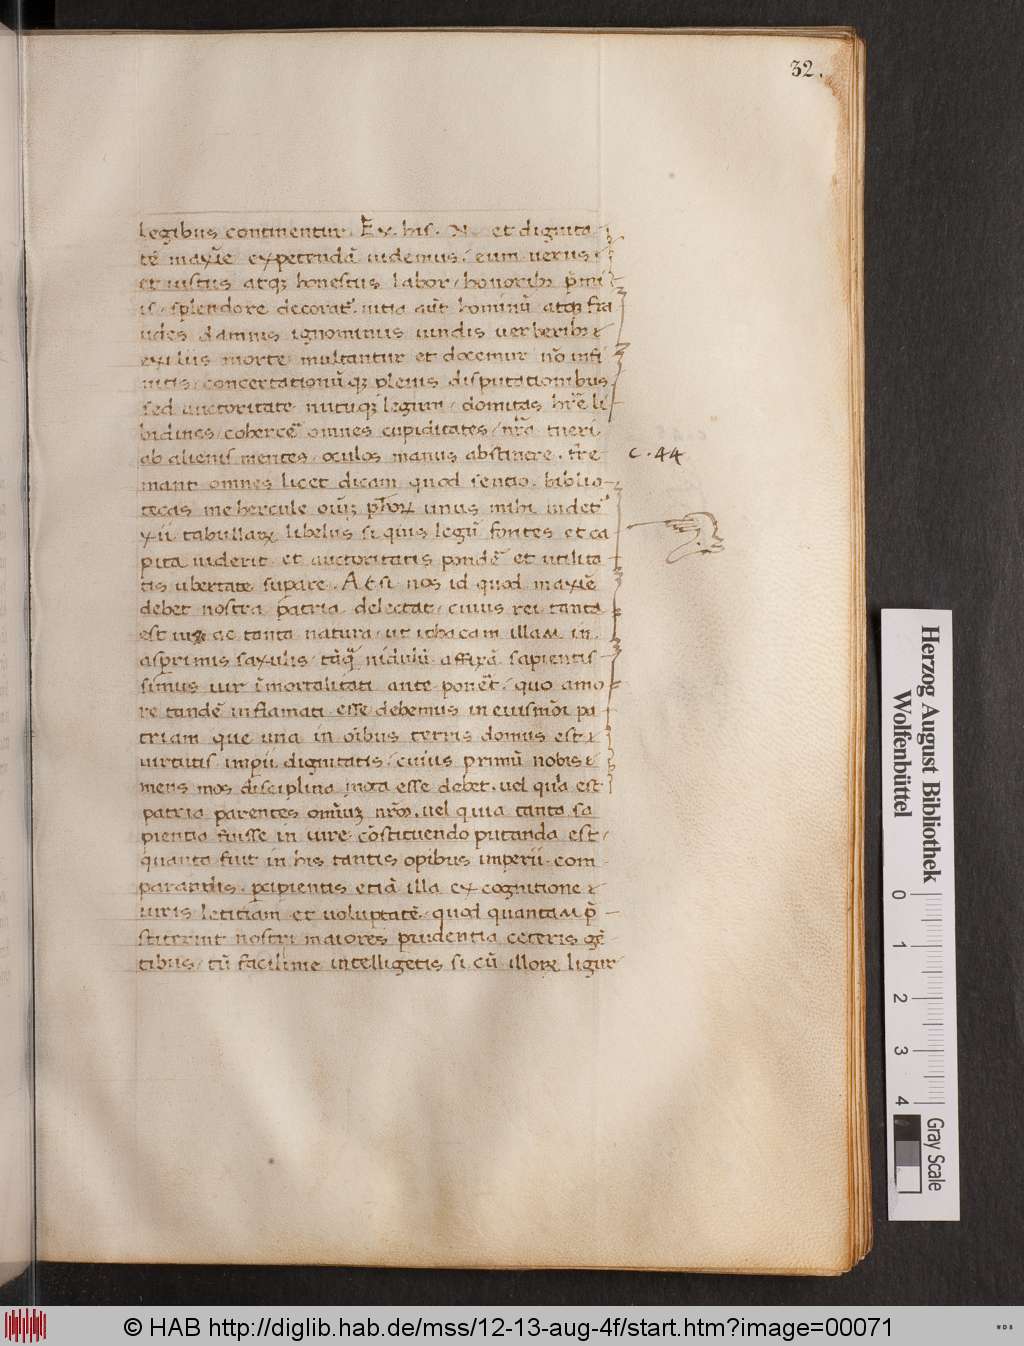 32.
legibus continentur. Ex. his. N. et dignita
tē maxīe expetendā uidemus / cum uerus
et iustus atqȝ honestus labor / honoribȝ p̄mi
is / splendore decorat᷑. uitia aūt hominū atqȝ frau
udes damnis ignominiis uindis uerberibȝ &
exiliis morte multantur et docemur nō infi
nitis / concertationūqȝ plenis disputationibus
sed auctoritate nutuqȝ legum / domitas hr̄e li
bidines / cohercē omnes cupiditates / nr̄a tueri
ab alienis mentes / oculos manus abstinere. Fre
c. 44
mant omnes licet dicam quod sentio. biblio-
tecas me hercule oīuȝ ph̄oꝝ unus mihi uidet᷑
xii tabullaꝝ libelus si quis legū fontes et ca
pita uiderit et auctoritatis pondē et utilita
tis ubertate supare. At si nos id quod maxīe
debet nostra patria delectat / cuius rei tanta
est uis ac tanta natura / ut ithacam illam in
asprimis saxulis / tāqȝ nidulū affixā sapientis
simus uir īmortalitati ante poneret / quo amo
re tandē inflamati esse debemus in eiusmōi pa
triam que una in oībus terris domus est &
uirtutis imp̄ii dignitatis / cuius primū nobis
mens mos disciplina nota esse debet. uel quia est
patria parentes omīuȝ nr̄os. uel quia tanta sa
pientia fuisse in iure cōstituendo putanda est /
quanta fuit in his tantis opibus imperii com
parandis. p̄cipientis etiā illa ex cognitione
iuris letitiam et uoluptatē. quod quantam p̄
stiterint nostri maiores prudentia ceteris gē
tibus / tū facilime intelligetis si cū illoꝝ ligur
Herzog August Bibliothek
Wolfenbüttel
0 1 2 3 4
Gray Scale
© HAB http://diglib.hab.de/mss/12-13-aug-4f/start.htm?image=00071